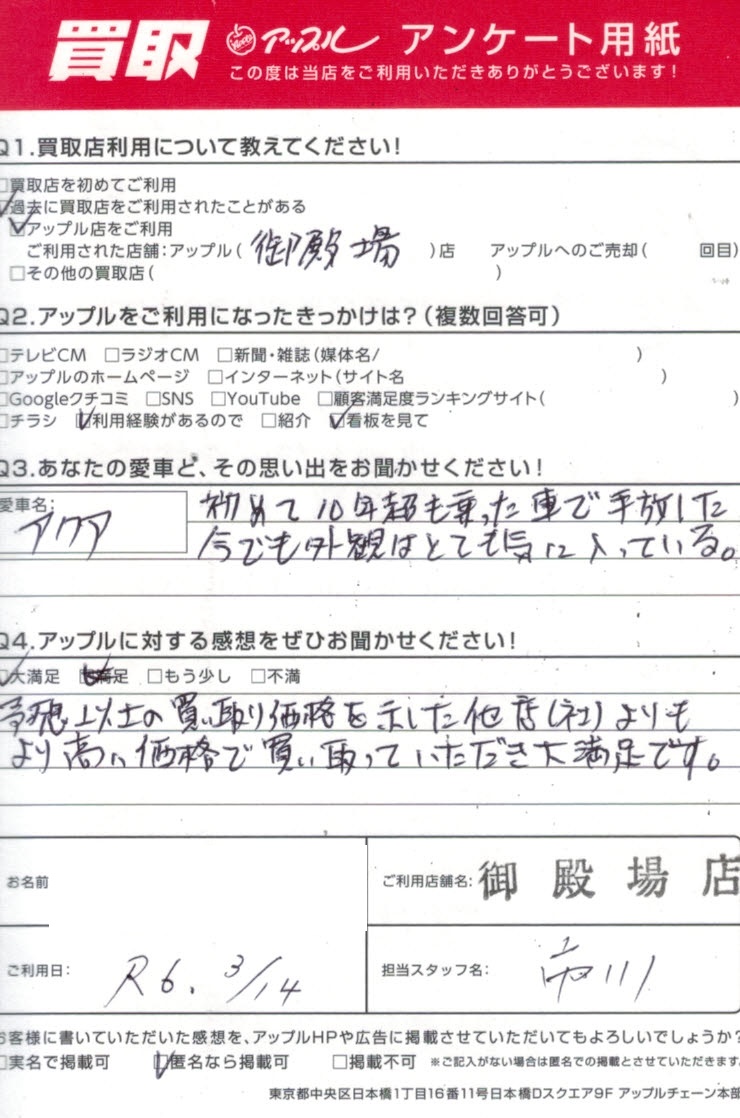 買取 アップル アンケート用紙
この度は当店をご利用いただきありがとうございます!
Q1.買取店利用について教えてください!
□買取店を初めてご利用
☑過去に買取店をご利用されたことがある
☑アップル店をご利用
ご利用された店舗:アップル( 御殿場 )店 アップルへのご売却( 回目)
□その他の買取店( )
Q2.アップルをご利用になったきっかけは?(複数回答可)
□テレビCM □ラジオCM □新聞・雑誌(媒体名/ )
□アップルのホームページ □インターネット(サイト名 )
□Googleクチコミ □SNS □YouTube □顧客満足度ランキングサイト( )
□チラシ ☑利用経験があるので □紹介 ☑看板を見て
Q3.あなたの愛車と、その思い出をお聞かせください!
愛車名:
アクア
初めて10年超も乗った車で手放した
今でも外観はとても気に入っている。
Q4.アップルに対する感想をぜひお聞かせください!
☑大満足 ☑満足 □もう少し □不満
予想以上の買い取り価格を示した他店(社)よりも
より高い価格で買い取っていただき大満足です。
お名前
ご利用店舗名: 御殿場店
ご利用日: R6. 3/14
担当スタッフ名: 市川
お客様に書いていただいた感想を、アップルHPや広告に掲載させていただいてもよろしいでしょうか?
□実名で掲載可 ☑匿名なら掲載可 □掲載不可 ※ご記入がない場合は匿名での掲載とさせていただきます。
東京都中央区日本橋1丁目16番11号日本橋Dスクエア9F アップルチェーン本部